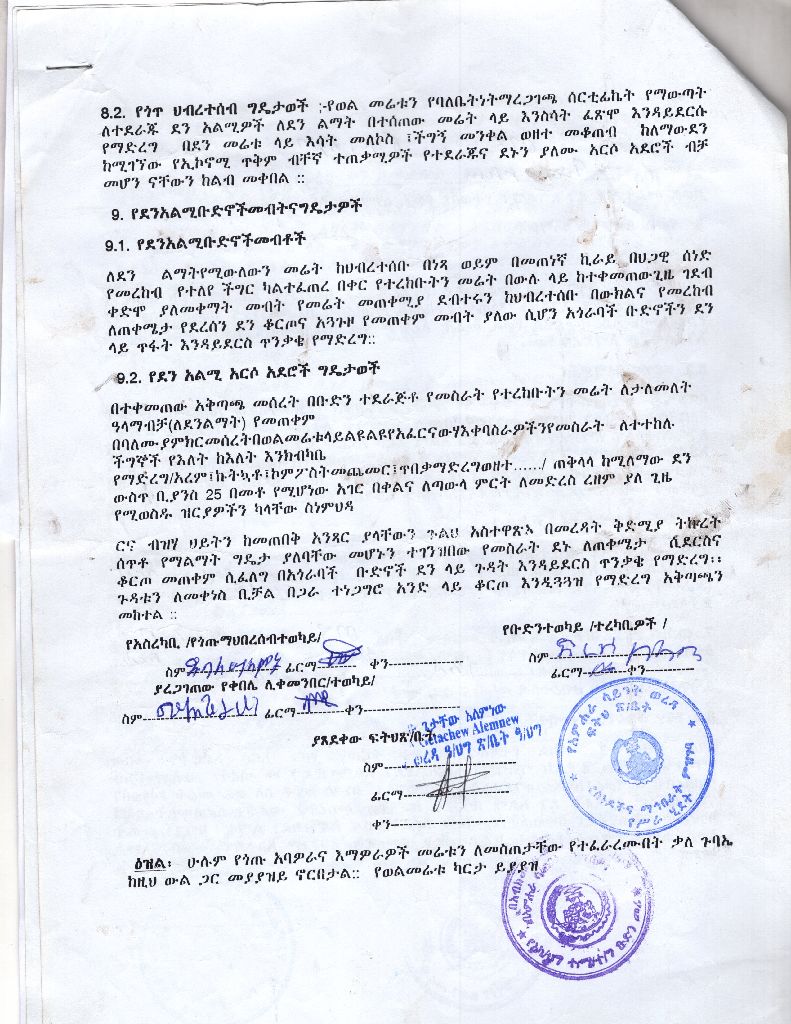 8.2. የጎጥ ህብረተሰብ ግዴታወች ;-የወል መሬቱን የባለቤትነትማረጋገጫ ሰርቲፊኬት የማውጣት
ለተደራጁ ደን አልሚዎች ለደን ልማት በተሰጠው መሬት ላይ እንስሳት ፈጽሞ እንዳይደርሱ
የማድረግ በደን መሬቱ ላይ እሳት መለኮስ ፣ችግኝ መንቀል ወዘተ መቆጠብ ከለማውደን
ከሚገኘው የኢኮኖሚ ጥቅም ብቸኛ ተጠቃሚዎች የተደራጁና ደኑን ያለሙ አርሶ አደሮች ብቻ
መሆን ናቸውን ከልብ መቀበል ::
9. የደንአልሚቡድኖችመብትናግዴታዎች
9.1. የደንአልሚቡድኖችመብቶች
ለደን ልማትየሚውለውን መሬት ከህብረተሰቡ በነጻ ወይም በመጠነኛ ኪራይ በህጋዊ ሰነድ
የመረከብ የተለየ ችግር ካልተፈጠረ በቀር የተረከቡትን መሬት በውሉ ላይ ከተቀመጠውጊዜ ገደብ
ቀድሞ ያለመቀማት መብት የመሬት መጠቀሚያ ደብተሩን ከህብረተሰቡ በውክልና የመረከብ
ለጠቀሜታ የደረሰን ደን ቆርጦና አጓጉዞ የመጠቀም መብት ያለው ሲሆን አጎራባች ቡድኖችን ደን
ላይ ጥፋት እንዳይደርስ ጥንቃቄ የማድረግ::
9.2. የደን አልሚ አርሶ አደሮች ግዴታወች
በተቀመጠው አቅጣጫ መሰረት በቡድን ተደራጅቶ የመስራት የተረከቡትን መሬት ለታለመለት
ዓላማብቻ(ለደንልማት) የመጠቀም
በባለሙያምክርመሰረትበወልመሬቱላይልዩልዩየአፈርናውሃእቀባስራዎችንየመስራት ለተተከሉ
ችግኞች የእለት ከእለት እንክብካቤ
የማድረግ/አረም፣ኩትኳቶ፣ኮምፖስትመጨመር፣ጥበቃማድረግወዘተ....../ ጠቅላላ ከሚለማው ደን
ውስጥ ቢያንስ 25 በመቶ የሚሆነው አገር በቀልና ለጣውላ ምርት ለመድረስ ረዘም ያለ ጊዜ
የሚወስዱ ዝርያዎችን ካላቸው ስነምህዳ
ርና ብዝሃ ህይትን ከመጠበቅ አንጻር ያላቸውን ጉልህ አስተዋጽኦ በመረዳት ቅድሚያ ትኩረት
ሰጥቶ የማልማት ግዴታ ያለባቸው መሆኑን ተገንዝበው የመስራት ደኑ ለጠቀሜታ ሲደርስና
ቆርጦ መጠቀም ሲፈለግ በአጎራባች ቡድኖች ደን ላይ ጉዳት እንዳይደርስ ጥንቃቄ የማድረግ፡፡
ጉዳቱን ለመቀነስ ቢቻል በጋራ ተነጋግሮ አንድ ላይ ቆርጦ እንዲጓጓዝ የማድረግ አቅጣጫን
መከተል ::
የአስረካቢ /የጎጡማህበረሰብተወካይ/
የቡድንተወካይ /ተረካቢዎች /
ስም ፊርማ---------- ቀን------------------
ስም
ፊርማ ቀን------------
ያረጋገጠው የቀበሌ ሊቀመንበር/ተወካይ/
ስም ፊርማ ቀን------------------
ያጸደቀው ፍትህጽ/ቤት
ጌታቸው አለምነው
Getachew Alemnew
ወረዳ ዓ/ህግ ጽ/ቤት ዓ/ህግ
ስም------------------------------
ፊርማ------------------------
ቀን--------------------------
የአምሐራ ሳይንት ወረዳ
ፍትህ ጽ/ቤት
ዕዝል፡ ሁሉም የጎጡ አባዎራና እማዎራዎች መሬቱን ለመስጠታቸው የተፈራረሙበት ቃለ ጉባኤ
ከዚህ ውል ጋር መያያዝይ ኖርበታል:: የወልመሬቱ ካርታ ይያያዝ